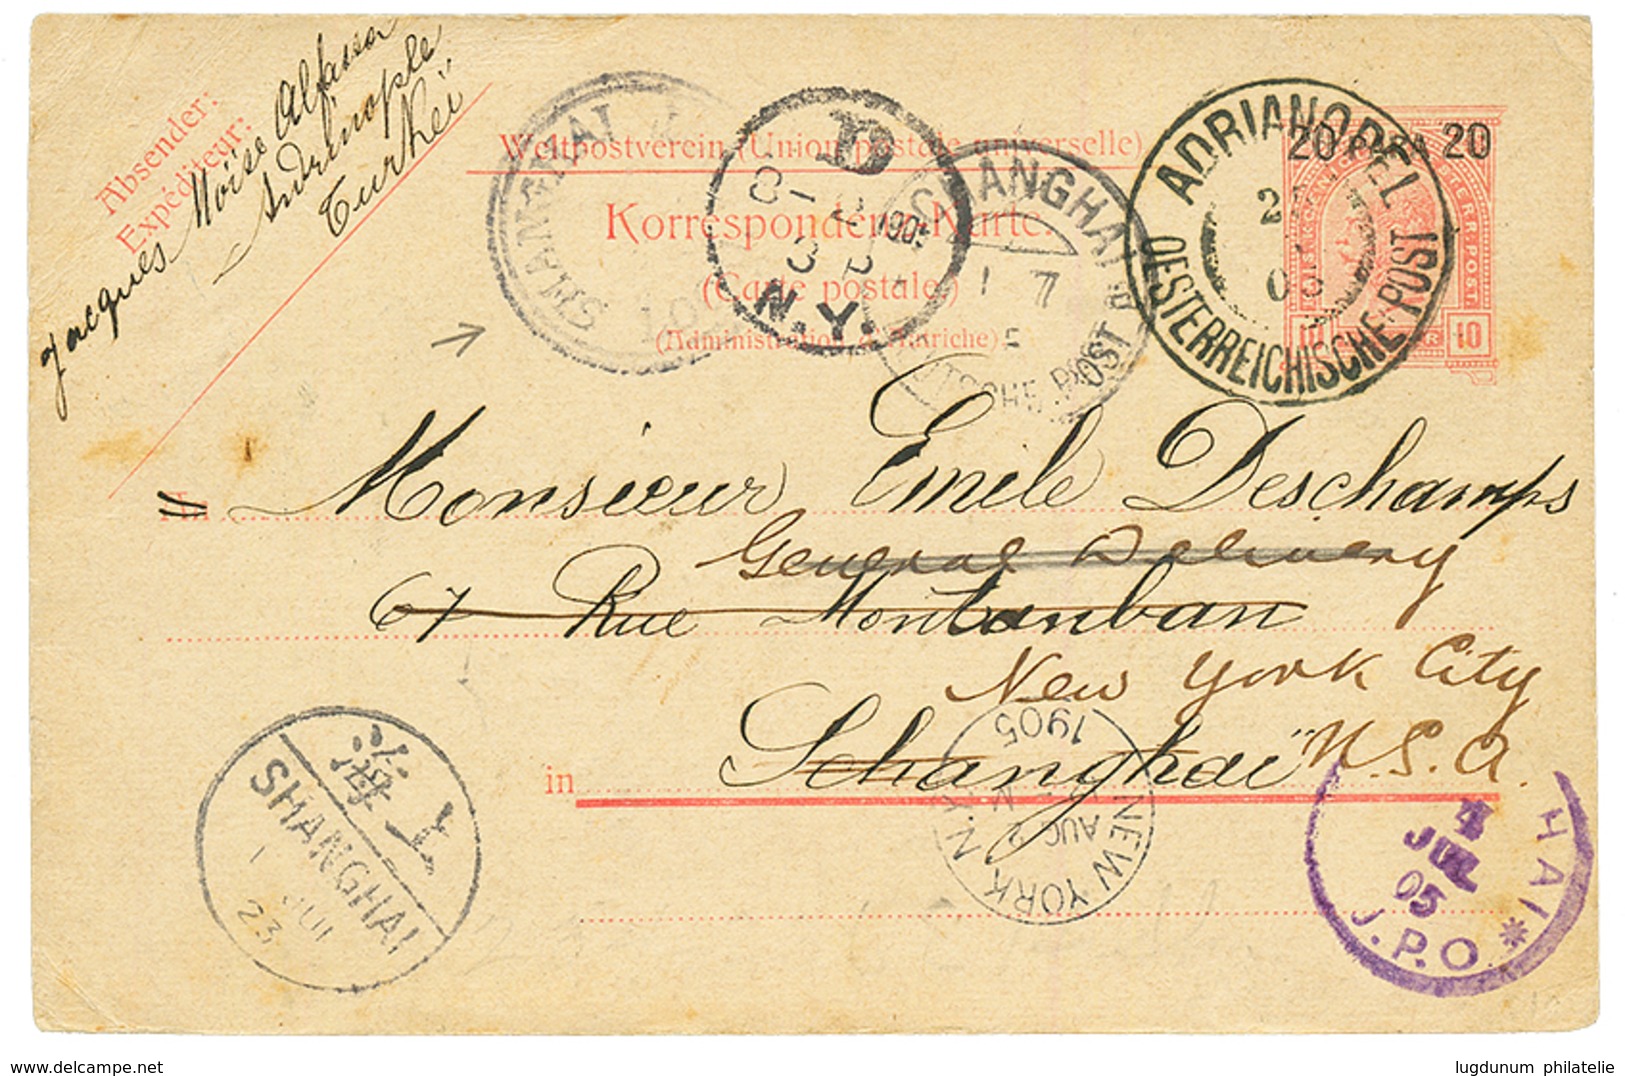 Absender:
Expéditeur:
Jacques Moïse Alfassa
Andrinople
Turkeï
Weltpostverein (Union postale universelle)
Korrespondenz-Karte.
(Carte postale)
(Administration d'Autriche)
20 PARA 20
10 10
ADRIANOPEL
OESTERREICHISCHE POST
SHANGHAI
D
8-2
1905
3 P
N.Y.
SHANGHAI
1 7
5
DEUTSCHE POST
An Monsieur Emile Deschamps
General Delivery
67 Rue Montauban
New York City
in Schanghaï U.S.A.
NEW YORK N.Y.
AUG 2
1905
上海
SHANGHAI
1 JUI
23
HAI
4
JUL
05
J.P.O.
lugdunum philatelie